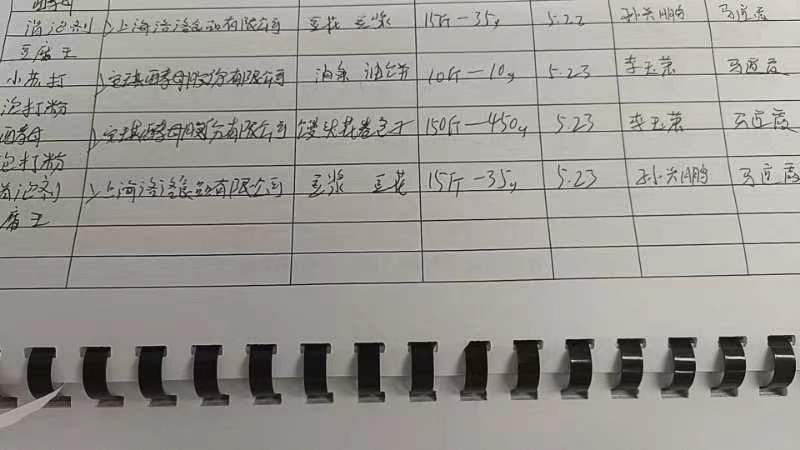 消泡剂 上海洛洛食品有限公司 豆花 豆浆 15斤-35g 5.22 孙兴鹏
豆腐王
小苏打 安琪酵母股份有限公司 油条 油饼 10斤-10g 5.23 李玉荣
泡打粉
酵母 安琪酵母股份有限公司 馒头花卷包子 150斤-450g 5.23 李玉荣
泡打粉
消泡剂 上海洛洛食品有限公司 豆浆 豆花 15斤-35g 5.23 孙兴鹏
腐王